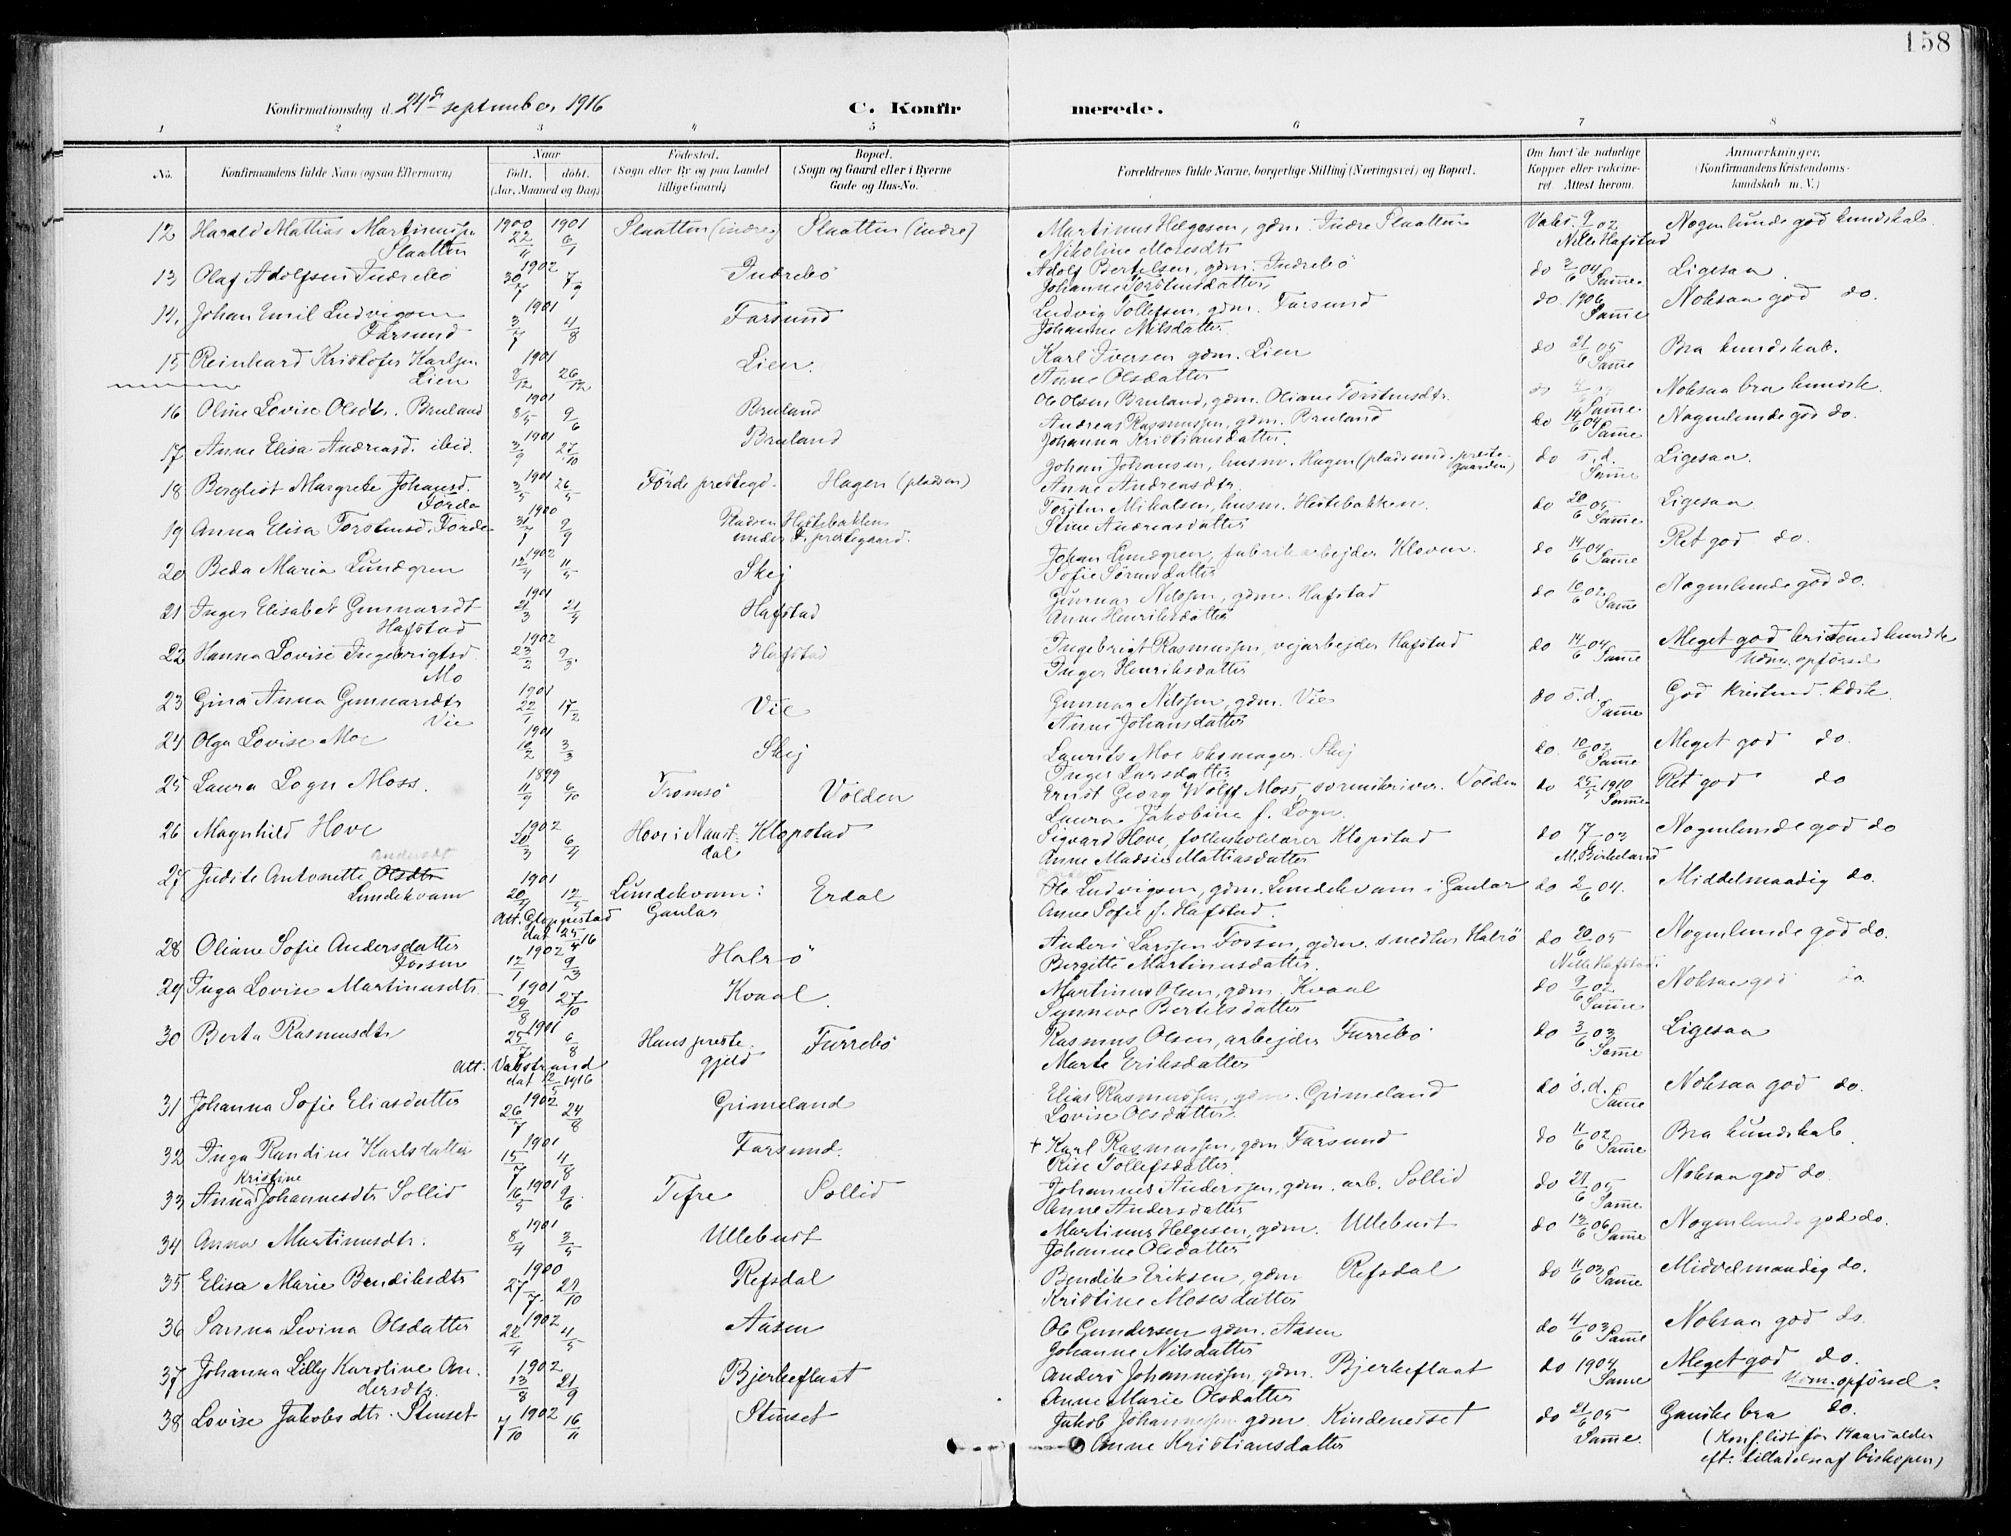 158
Konfirmationsdag d. 24de september 1916 C. Konfirmerede.
1 2 3 4 5 6 7 8
No. Konfirmandens fulde Navn (ogsaa Efternavn) Naar født. døbt. (Aar, Maaned og Dag) Fødested. (Sogn eller By og paa Landet tillige Gaard) Bopæl. (Sogn og Gaard eller i Byerne Gade og Hus-No. Forældrenes fulde Navne, borgerlige Stilling (Næringsvei) og Bopæl. Om havt de naturlige Kopper eller vakcineret. Attest herom. Anmærkninger. (Konfirmandens Kristendomskundskab m. V.)
12 Harald Mattias Martinussen Slaatten 1900 22/11 1901 6/1 Slaatten (indre) Slaatten (indre) Martinus Helgesen, gdm. Indre Slaatten Nikoline Mosesdtr Vaks. 9/6 02 Nills Hafstad Nogenlunde god kundskab.
13 Olaf Adolfsen Indrebö 1902 30/7 7/9 Indrebö Adolf Bertelsen, gdm. Indrebö Johanne Torstensdatter do 3/6 04 Samme Ligesaa.
14. Johan Emil Ludvigsen Farsund 1901 3/7 4/8 Farsund Ludvig Tollefsen, gdm. Farsund Johanne Nilsdatter do. 1906 Samme Noksaa god do.
15 Reinhard Kristofer Karlsen Lien 1901 8/12 26/12 Lien. Karl Iversen gdm. Lien Anne Olsdatter do 21/6 05 Samme Bra kundskab.
16 Oline Lovise Olsdtr. Bruland 1901 8/5 9/6 Bruland Ole Olsen Bruland, gdm. Oliane Torstensdtr. do Samme Noksaa bra kundsk.
17 Anne Elisa Andreasd. ibid. 1901 3/9 27/10 Bruland Andreas Rasmussen, gdm. Bruland Johanna Kristiansdatter. do 14/6 04 Samme Nogenlunde god do.
18 Borghildt Margrete Johansd. Förde 1901 3/5 26/5 Förde prestegd. Hagen (pladsen) Johan Johansen, husm. Hagen (plads und. prestegaarden) Anne Andreasdtr. do s.d. Samme Ligesaa.
19 Anna Elisa Torstensd. Förde 1900 31/7 9/9 Pladsen Hestebakken under F. prestegaard. Torsten Mikalsen, husm. Hestebakken. Stine Andreasdatter do 20/6 05 Samme Ligesaa
20 Beda Maria Lundgren 1902 12/4 11/5 Skej Johan Lundgren, fabrikarbejder Kloven. Sofie Sörensdatter do 14/6 04 Samme Ret god do.
21 Inger Elisabet Gunnarsdt Hafstad 1901 21/3 21/4 Hafstad Gunnar Nilssen, gdm. Hafstad Anne Henriksdatter do 10/6 02 Samme Nogenlunde god do.
22 Hanna Lovise Ingebrigtsd. Mo 1902 23/2 9/3. Hafstad Ingebrigt Rasmussen, vejarbejder Hafstad Inger Henriksdatter do 14/6 04 Samme Meget god kristendkundsk Udm. opförsel
23 Gina Anna Gunnarsdtr Vie 1901 22/1 17/2 Vie Gunnar Nilssen, gdm. Vie Anne Johansdatter do s.d. Samme God kristend. kdsk.
24 Olga Lovise Moe 1901 10/2 3/3 Skej Laurits Moe skomager. Skej Inger Larsdatter do. 10/6 02 Samme Meget god do.
25 Laura Logn Moss. 1899 11/9 6/10 Tromsö Volden Ernst Georg Wolff Moss, sorenskriver. Volden Laura Jakobine f. Logn. do 25/5 1910 Samme Ret god do
26 Magnhild Hove 1902 20/3 6/4 Hove i Naustdal Klopstad Sigvard Hove, follenholderer Klopstad Anne Madsie Mattiasdatter do 17/6 03 M. Birkeland Nogenlunde god do
27 Judite Antonette Olsdtr Andersdt Lundekvam 1901 20/4 12/5 Att. Gloppestad dat 25/4 16 Lundekvam: Gaular Erdal Ole Ludvigsen, gdm. Lundekvam i Gaular Anne Sofie f. Hafstad. do 2/6 04. Middelmaadig do.
28 Oliane Sofie Andersdatter Fossum 1902 12/1 9/3 Halvö Anders Larssen Fossen, gdm. snedker Halvö Bergitte Martinusdatter. do 20/6 05 Nills Hafstad. Nogenlunde god do.
29 Inga Lovise Martinusdtr. 1901 29/8 27/10 Kvaal. Martinus Olsen, gdm. Kvaal Synneve Bertelsdatter do 9/6 02 Samme Noksaa god do.
30 Berta Rasmusdtr 1901 25/7 6/8 Att. Vaksstrand dat 12/5 1916 Hans prestegjeld Furrebö Rasmus Olsen, arbejder Furrebö Marte Eriksdatter do 3/6 03 Samme Ligesaa
31 Johanna Sofie Eliasdatter 1902 26/7 24/8 Grimeland Elias Rasmussen, gdm. Grimeland Lovise Olsdatter. do s.d. Samme Noksaa god do.
32 Inga Randine Karlsdatter 1901 15/7 4/8 Farsund. + Karl Rasmussen, gdm Farsund Rise Tollefsdatter. do 11/6 02 Samme Bra kundskab.
33 Anna Kristine Johannesdtr Sollid 1901 16/5 9/6. Tefre Sollid Johannes Anderssen, gdm. arb. Sollid Anne Andersdatter do 21/6 05 Samme Noksaa god do.
34 Anna Martinusdtr. 1901 8/4 3/5 Ullebust Martinus Helgesen, gdm. Ullebust Johanne Olsdatter do 13/6 06 Samme Nogenlunde god do.
35 Elisa Marie Bendiksdtr 1900 27/7. 21/10 Refsdal Bendik Eriksen, gdm Refsdal Kristine Mosesdatter do 11/6 03 Samme Middelmaadig do.
36 Sanna Levina Olsdatter 1902 22/4 4/5 Aasen Ole Gundersen gdm. Aasen Johanne Nilsdatter do 4/6 03 Samme Noksaa god do.
37 Johanna Lilly Karoline Andersdtr. 1902 13/8 21/9 Bjerkeflaat Anders Johannessen, gdm. Bjerkeflaat Anne Marie Olsdatter do 1904 Samme Meget god do. Udm. opförsel.
38 Lovise Jakobsdtr. Stenset 1902 7/10 16/11 Stenset Jakob Johannessen gdm. Kindeneset Anne Kristiansdatter do 21/6 05 Samme. Ganske bra do. (Konf. lidt för 14aarsalder eft. tilladelse af biskopen)